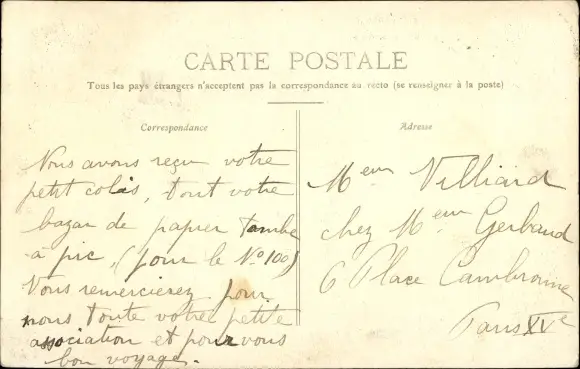 CARTE POSTALE
Tous les pays étrangers n'acceptent pas la correspondance au recto (se renseigner à la poste)
Correspondance
Nous avons reçu votre
petit colis, tout votre
bazar de papier tombe
a pic, (pour le No 100)
Vous remercierez pour
nous toute votre petite
association et pour vous
bon voyage.
Adresse
Meur Villiard
chez Meur Gerbaud
6 Place Cambronne
Paris XVe